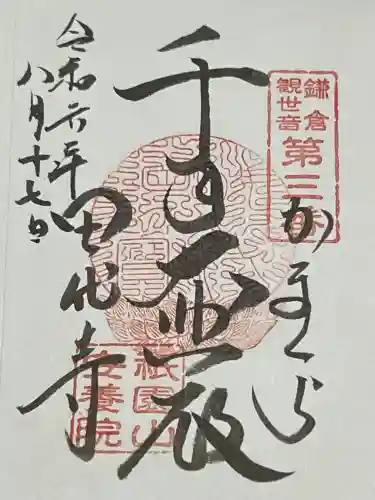 鎌倉
観世音
第三番
かまくら
千手殿
田代寺
令和六年
八月十七日
祇園山
安養院